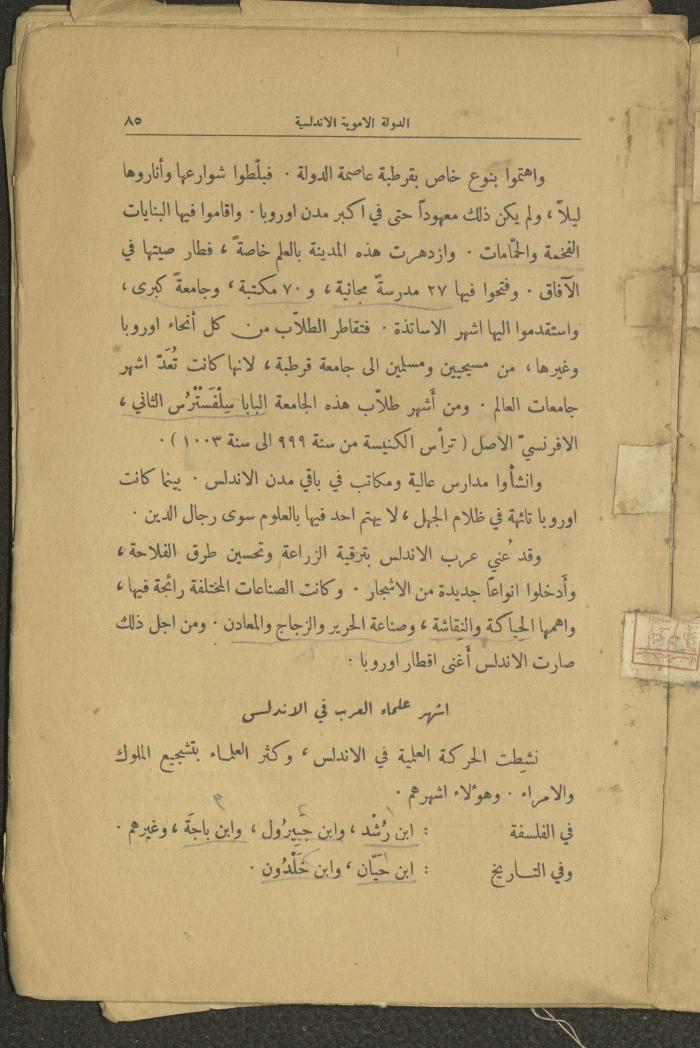 الدولة الاموية الاندلسية ٨٥
واهتموا بنوع خاص بقرطبة عاصمة الدولة . فبلّطوا شوارعها وأناروها
ليلاً ، ولم يكن ذلك معهوداً حتى في اكبر مدن اوروبا . واقاموا فيها البنايات
الفخمة والحمّامات . وازدهرت هذه المدينة بالعلم خاصةً ، فطار صيتها في
الآفاق . وفتحوا فيها ٢٧ مدرسةً مجانية ، و ٧٠ مكتبة ، وجامعةً كبرى ،
واستقدموا اليها اشهر الاساتذة . فتقاطر الطلاّب من كل أنحاء اوروبا
وغيرها ، من مسيحيين ومسلمين الى جامعة قرطبة ، لانها كانت تُعَدّ اشهر
جامعات العالم . ومن أَشهر طلاّب هذه الجامعة البابا سِلْفَسْتْرُس الثاني ،
الافرنسيّ الاصل ( ترأس الكنيسة من سنة ٩٩٩ الى سنة ١٠٠٣ ) .
وانشأوا مدارس عالية ومكاتب في باقي مدن الاندلس . بينما كانت
اوروبا تائهة في ظلام الجهل ، لا يهتم احد فيها بالعلوم سوى رجال الدين .
وقد عُني عرب الاندلس بترقية الزراعة وتحسين طرق الفلاحة ،
وأَدخلوا انواعاً جديدة من الاشجار . وكانت الصناعات المختلفة رائجة فيها ،
واهمها الحِياكة والنِقاشة ، وصناعة الحرير والزجاج والمعادن . ومن اجل ذلك
صارت الاندلس أَغنى اقطار اوروبا .
اشهر علماء العرب في الاندلس
نشِطت الحركة العلمية في الاندلس ، وكثر العلماء بتشجيع الملوك
والامراء . وهؤلاء اشهرهم .
في الفلسفة : ابن رُشْد ، وابن جَبِيرُول ، وابن باجَة ، وغيرهم .
وفي التاريخ : ابن حَيّان ، وابن خَلْدُون .